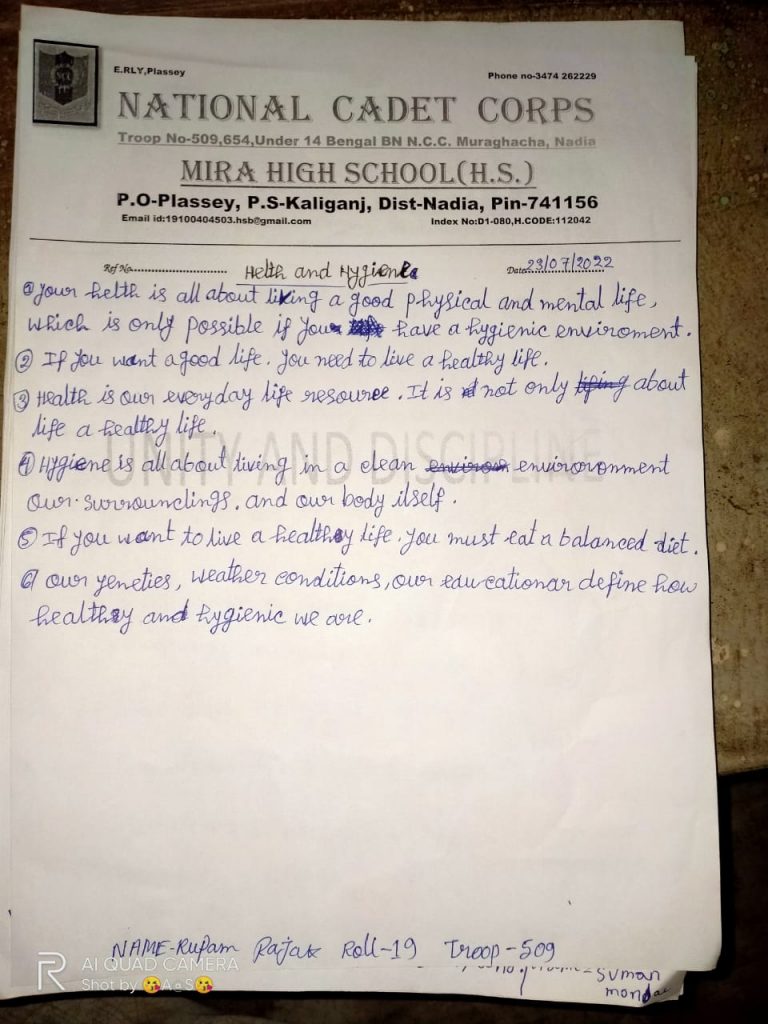 E.RLY,Plassey
Phone no-3474 262229
NATIONAL CADET CORPS
Troop No-509,654,Under 14 Bengal BN N.C.C. Muraghacha, Nadia
MIRA HIGH SCHOOL(H.S.)
P.O-Plassey, P.S-Kaliganj, Dist-Nadia, Pin-741156
Email id:19100404503.hsb@gmail.com
Index No:D1-080,H.CODE:112042
Ref No.
Helth and Hygiene
Date 23/07/2022
① Your helth is all about living a good physical and mental life,
which is only possible if you have a hygienic enviroment.
② If you want a good life. you need to live a healthy life.
③ Health is our everyday life resource. It is not only lifing about
life a healthy life.
UNITY AND DISCIPLINE
④ Hygiene is all about living in a clean environ enviroronment
our surroundings. and our body itself.
⑤ If you want to live a healthy life. you must eat a balanced diet.
⑥ our yeneties, weather conditions, our educationar define how
healthy and hygienic we are.
NAME-Rupam Rajak Roll-19 Troop-509
Suman
mondal
AI QUAD CAMERA
Shot by 😘A@S😘